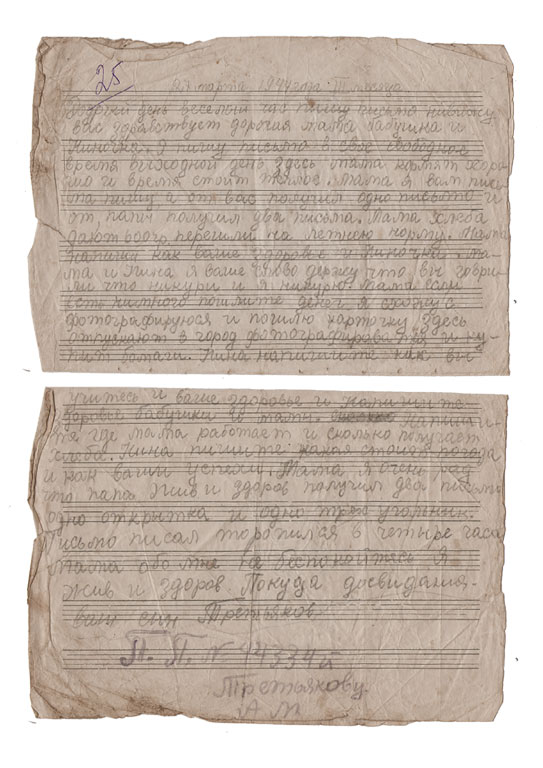 25
марта 1944 года
Добрый день веселый час пишу письмо
вас здравствует дорогия мама бабушка и
Ниночка. Я пишу письмо в свое свободное
время выходной день здесь мама кормят хоро
шо и время стоит теплое. Мама я вам пись
ма пишу а от вас получил одно письмо и
от папы получил два письма. Мама хлеба
дают 600гр перешли на летнею норму. Мама
напиши как ваше здоровье и Ниночки. Ма-
ма и Нина я ваше слово держу что вы говри
ли что никури и я никурю. Мама если
есть пошлите денег я
фотографируюся и пошлю карточку здесь
отпускают в город фотографироваться и ку-
пит бомаги. Нина напишите как вы
учитесь и ваше здоровье и напишите
здоровье бабушки и мамы. напиши
те где мама работает и сколько получает
хлеба. Нина пишите какая стоит погода
и как ваши успехи. Мама я очень рад
что папа жив и здоров получил два письма
одно открытка и одно треу угольник.
Письмо писал торопился в четыре часа
мама обо мне не беспокойтесь я
жив и здоров Покуда досвидания-
ваш сын Третьяков
П. П. № 14334
Третьякову.
А М